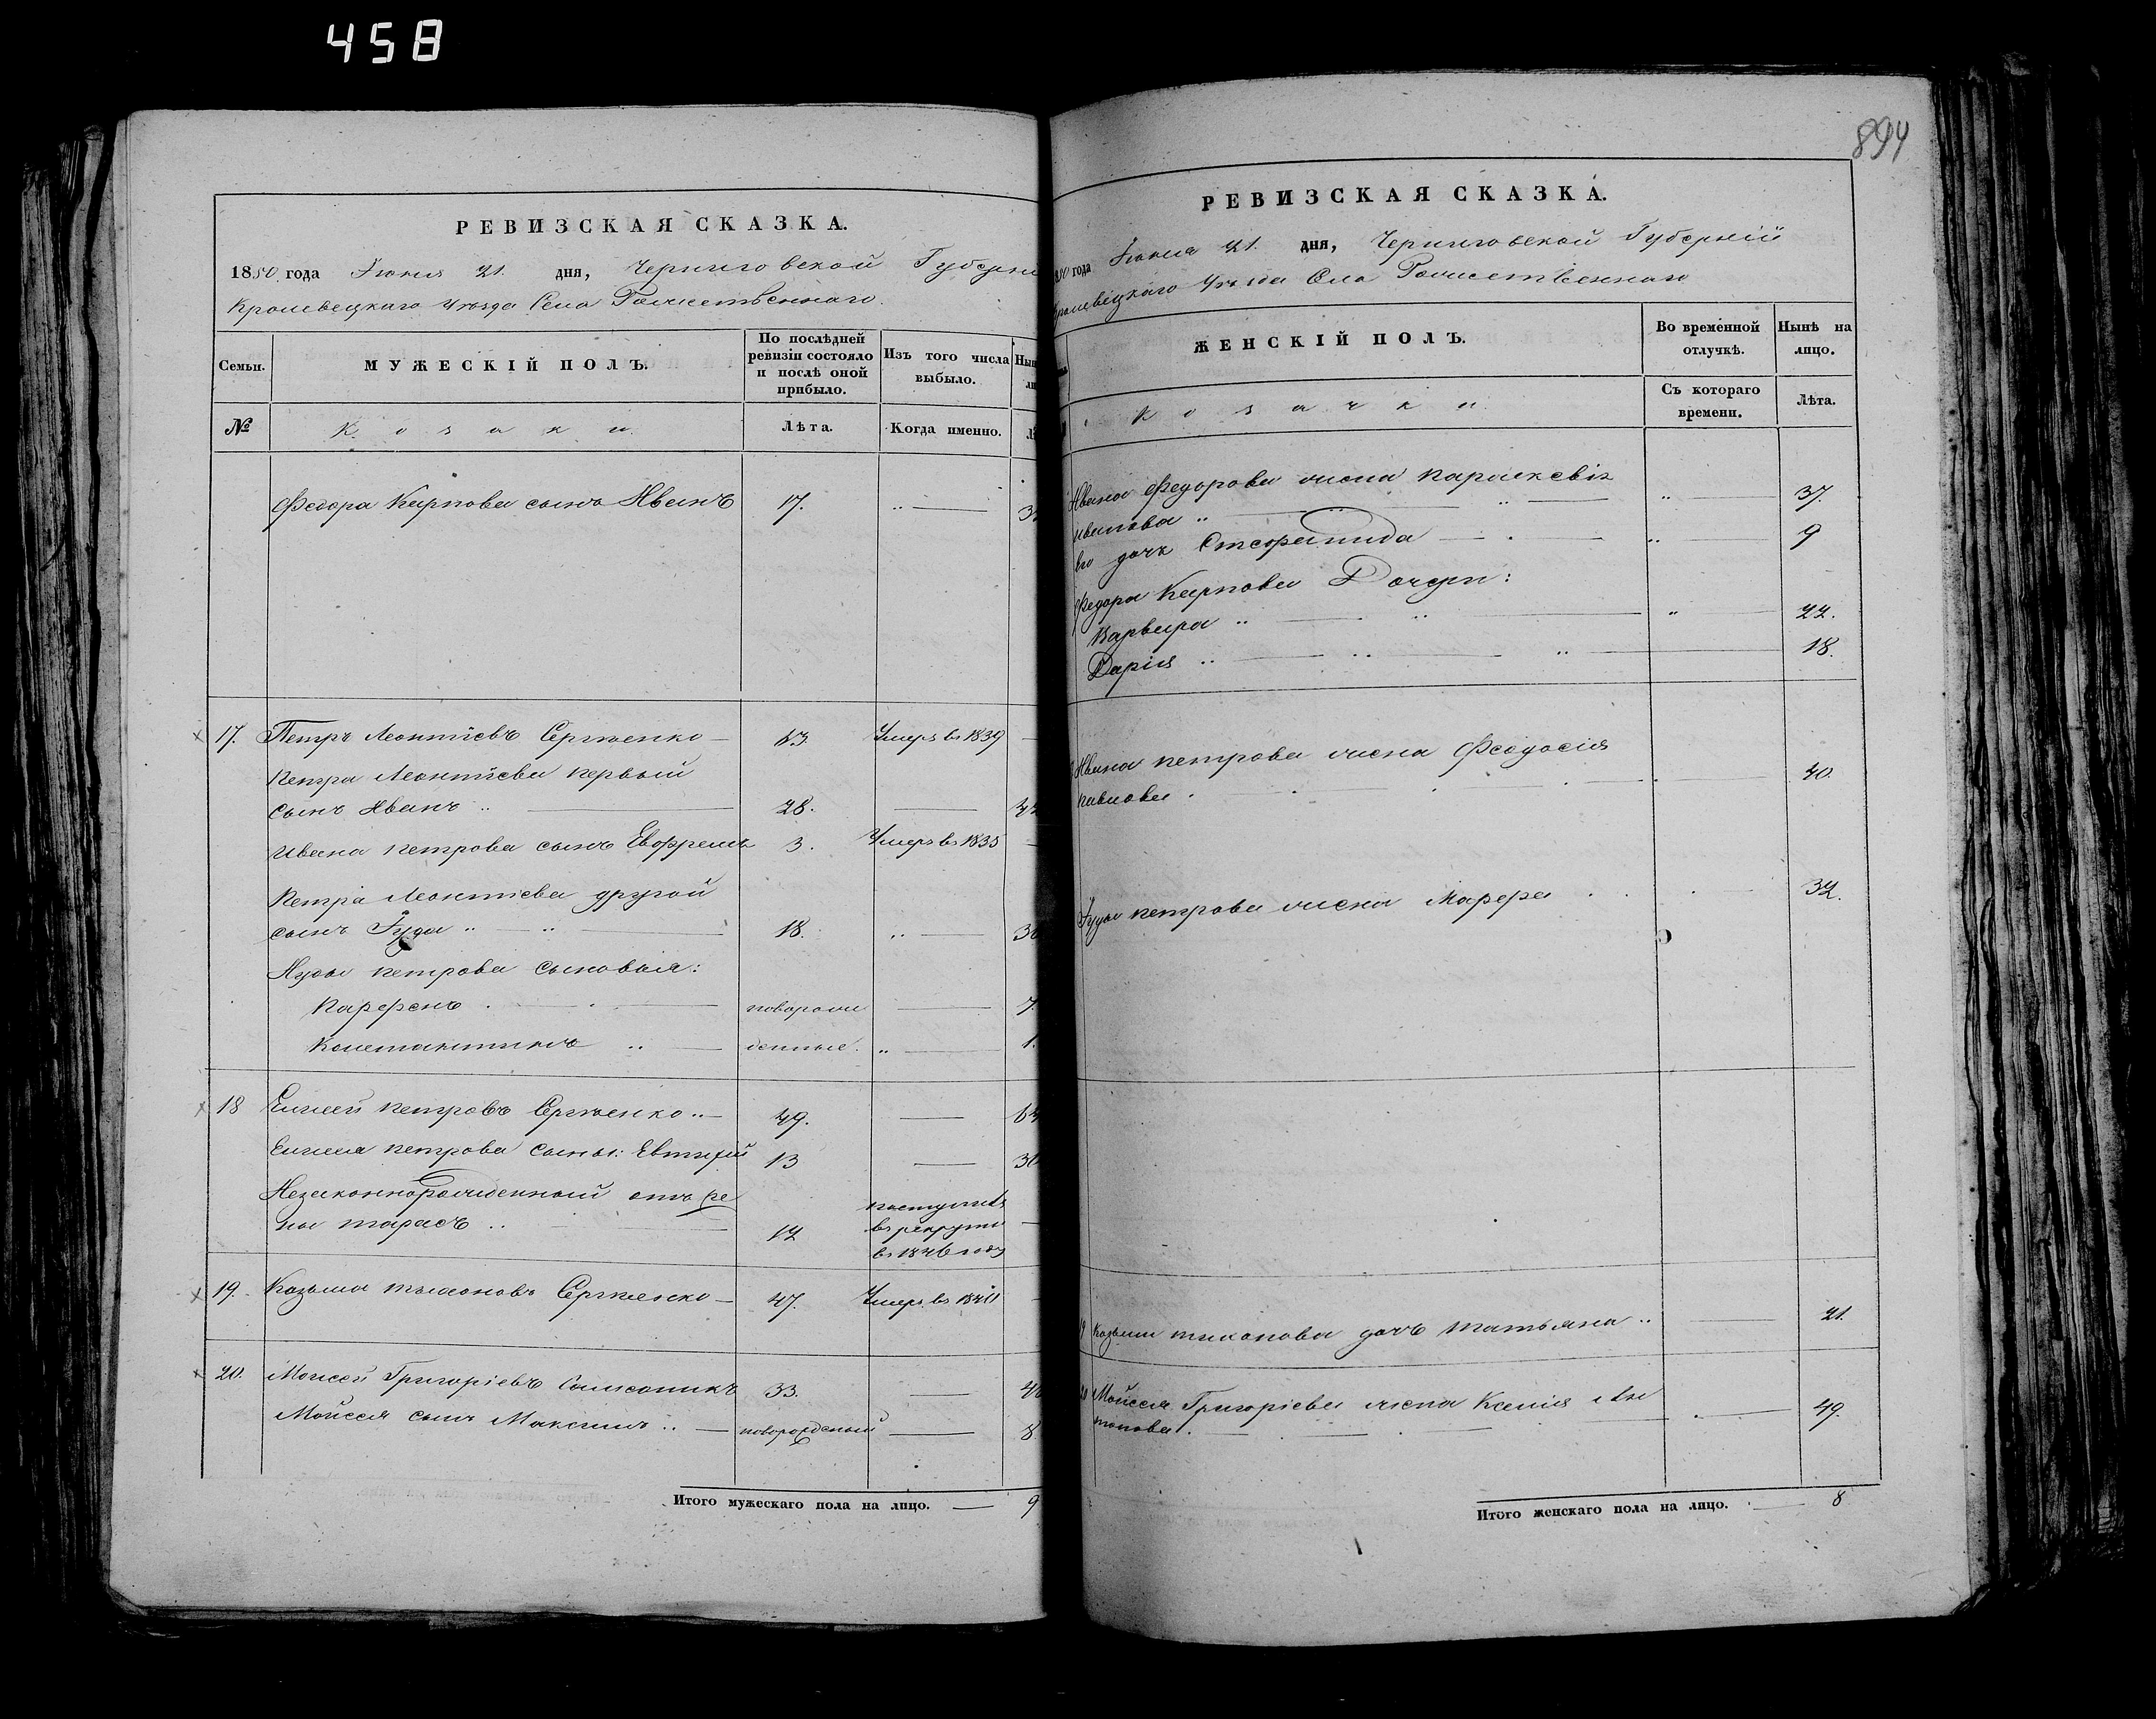 458
894
РЕВИЗСКАЯ СКАЗКА.
1850 года Июня 21. дня, Черниговской Губерни
Кролевецкаго уѣзда Села Рожественнаго.
Семьи. МУЖЕСКІЙ ПОЛЪ. По послѣдней ревизіи состояло и послѣ оной прибыло. Изъ того числа выбыло.
№ Козаки Лѣта. Когда именно.
Федора Карпова сынъ Иванъ 17. 3
17. Петръ Леонтіевъ Сергѣенко 63. Умеръ въ 1839
Петра Леонтіева первый
сынъ Иванъ 28.
Ивана Петрова сынъ Евфремъ 3. Умеръ въ 1835
Петра Леонтіева другой
сынъ Іуда 18. 3
Иуды Петрова сыновья:
Парфенъ новорож 7.
Константинъ денные. 1.
18 Елисей Петровъ Сергѣенко 49. 6
Елисея Петрова сыны: Евтифій 13 3
Незаконнорожденный отъ ре
ны Тарасъ 12 поступилъ
въ рекруты
въ 1846 году
19. Козьма Тихоновъ Сергѣенко 47. Умеръ въ
20. Моисей Григоріевъ 33. 4
Моисея сынъ Максимъ новорожденный 8
Итого мужескаго пола на лицо. 9
РЕВИЗСКАЯ СКАЗКА.
850 года Июня 21. дня, Черниговской Губерніи
Кролевецкаго уѣзда Села Рожественнаго
ЖЕНСКІЙ ПОЛЪ. Во временной отлучкѣ. Нынѣ на лицо.
Козачки. Съ котораго времени. Лѣта.
Ивана Федорова жена Параскевія
Иванова 37.
Его дочь Стефанида 9
Федора Карпова Дочери:
Варвара 22.
Дарія 18.
Ивана Петрова жена Феодосія
Павлова 40.
Іуды Петрова жена Марфа 32.
19 Козьмы Тихонова дочь Татьяна 21.
20 Мойсея Григоріева жена Ксенія Ан
тонова 49.
Итого женскаго пола на лицо. 8